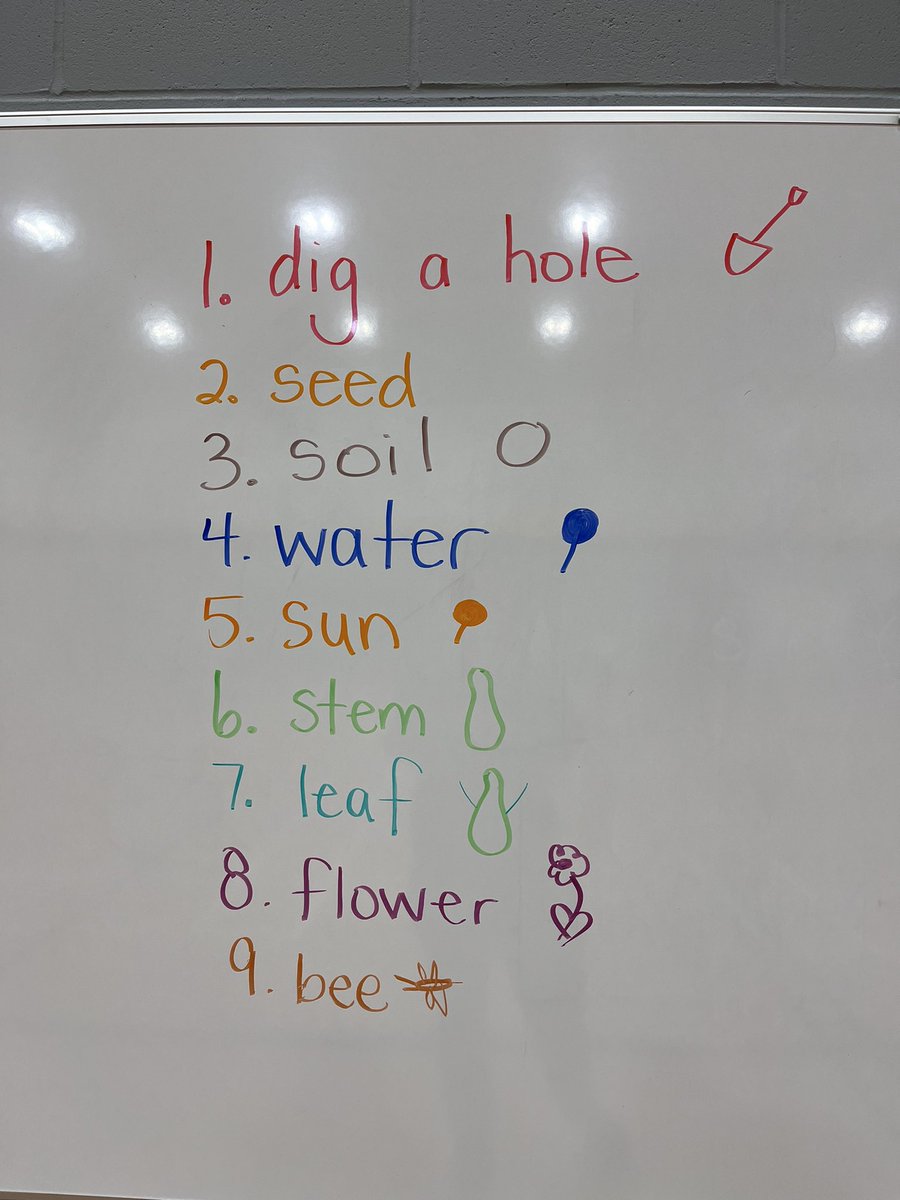 1. dig a hole
2. seed
3. soil
4. water
5. sun
6. stem
7. leaf
8. flower
9. bee